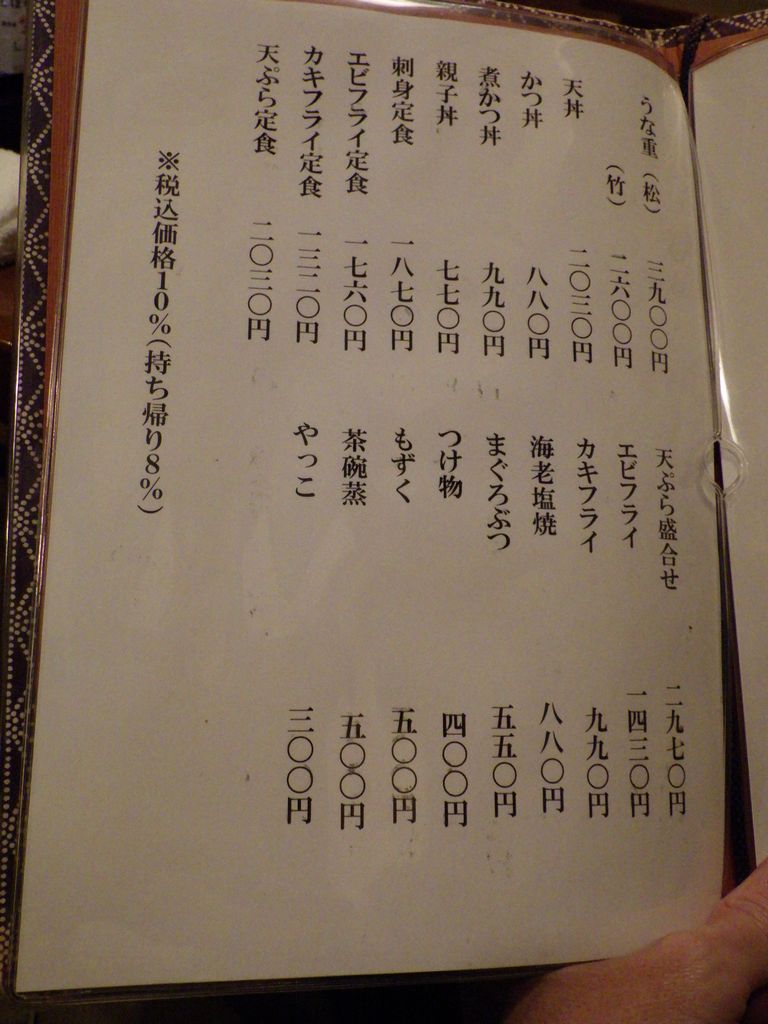 うな重（松） 三九〇〇円
（竹） 二六〇〇円
天丼 二〇三〇円
かつ丼 八八〇円
煮かつ丼 九九〇円
親子丼 七七〇円
刺身定食 一八七〇円
エビフライ定食 一七六〇円
カキフライ定食 一三二〇円
天ぷら定食 二〇三〇円
天ぷら盛合せ 二九七〇円
エビフライ 一四三〇円
カキフライ 九九〇円
海老塩焼 八八〇円
まぐろぶつ 五五〇円
つけ物 四〇〇円
もずく 五〇〇円
茶碗蒸 五〇〇円
やっこ 三〇〇円
※税込価格10%（持ち帰り8%）